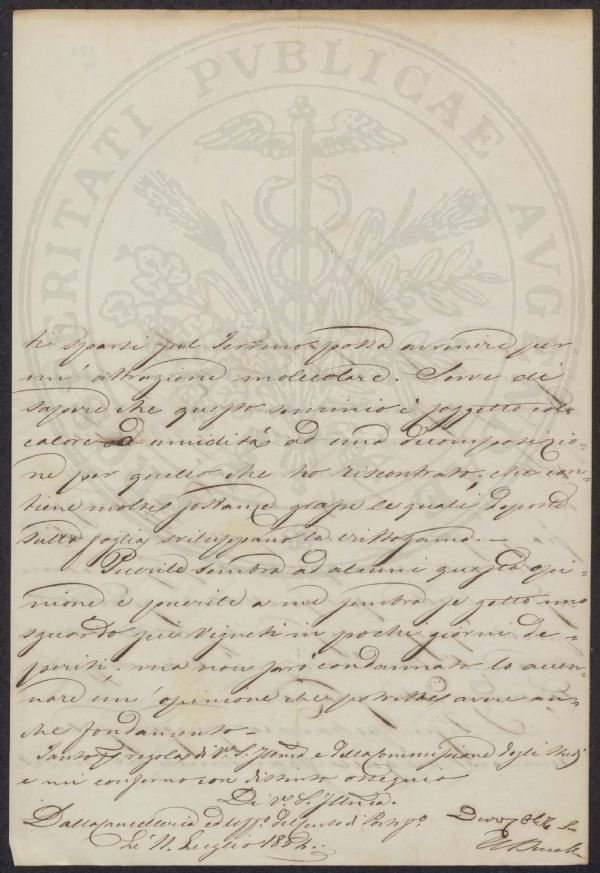 PROSPERITATI PVBLICAE AVGENDAE
ti sparsi pel Terreno possa avvenire per
un' attrazione molecolare. Serve di
sapere che questo seminio è soggetto col
calore ed umidità ad una decomposizio-
ne per quello che ho riscontrato, che con-
tiene molte sostanze grasse le quali deposte
sulla foglia sviluppano la crittogama. —
Puerile sembra ad alcuni questa opi-
nione e puerile a me sembra se getto uno
sguardo pei Vigneti in pochi giorni de-
periti, ma non sarò condannato lo accen-
nare un' opinione che potrebbe avere an-
che fondamento. —
Tanto regola di V.a S. Illma e della Commissione degli Studj
e mi confermo con distinto ossequio
Di V.a S. Illma.
Dalla Cancelleria ed Uffo. del Censo di
Devo Obb
Li 11. Luglio 1854.